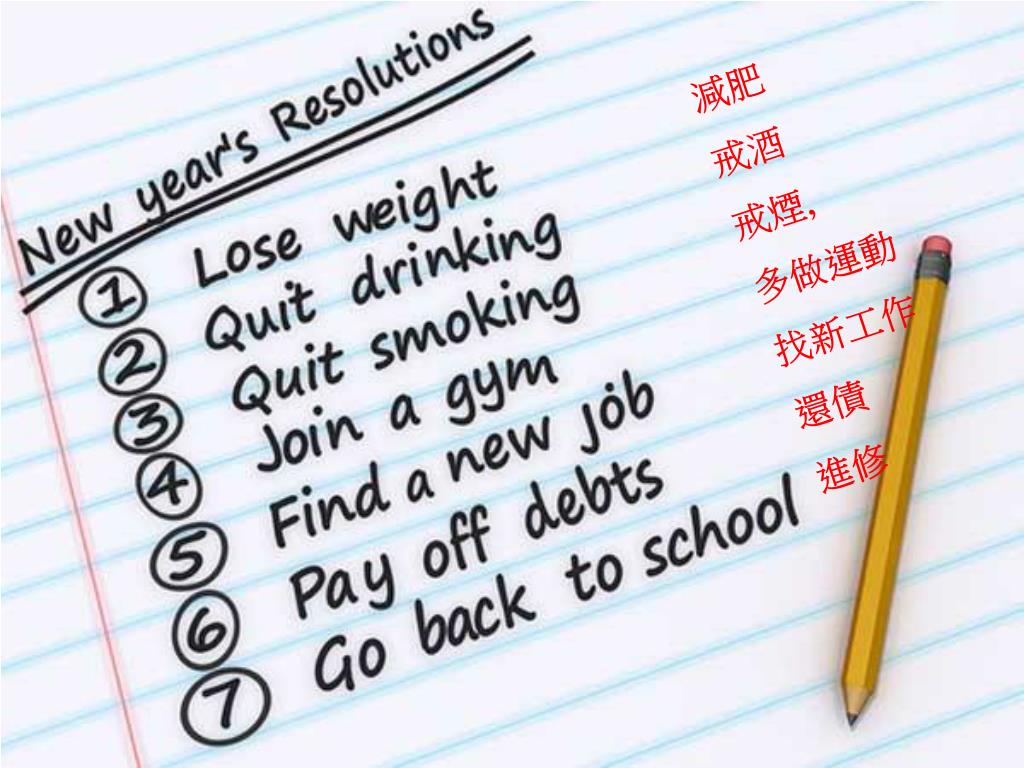 New year's Resolutions
1 Lose weight
2 Quit drinking
3 Quit smoking
4 Join a gym
5 Find a new job
6 Pay off debts
7 Go back to school
減肥
戒酒
戒煙,
多做運動
找新工作
還債
進修